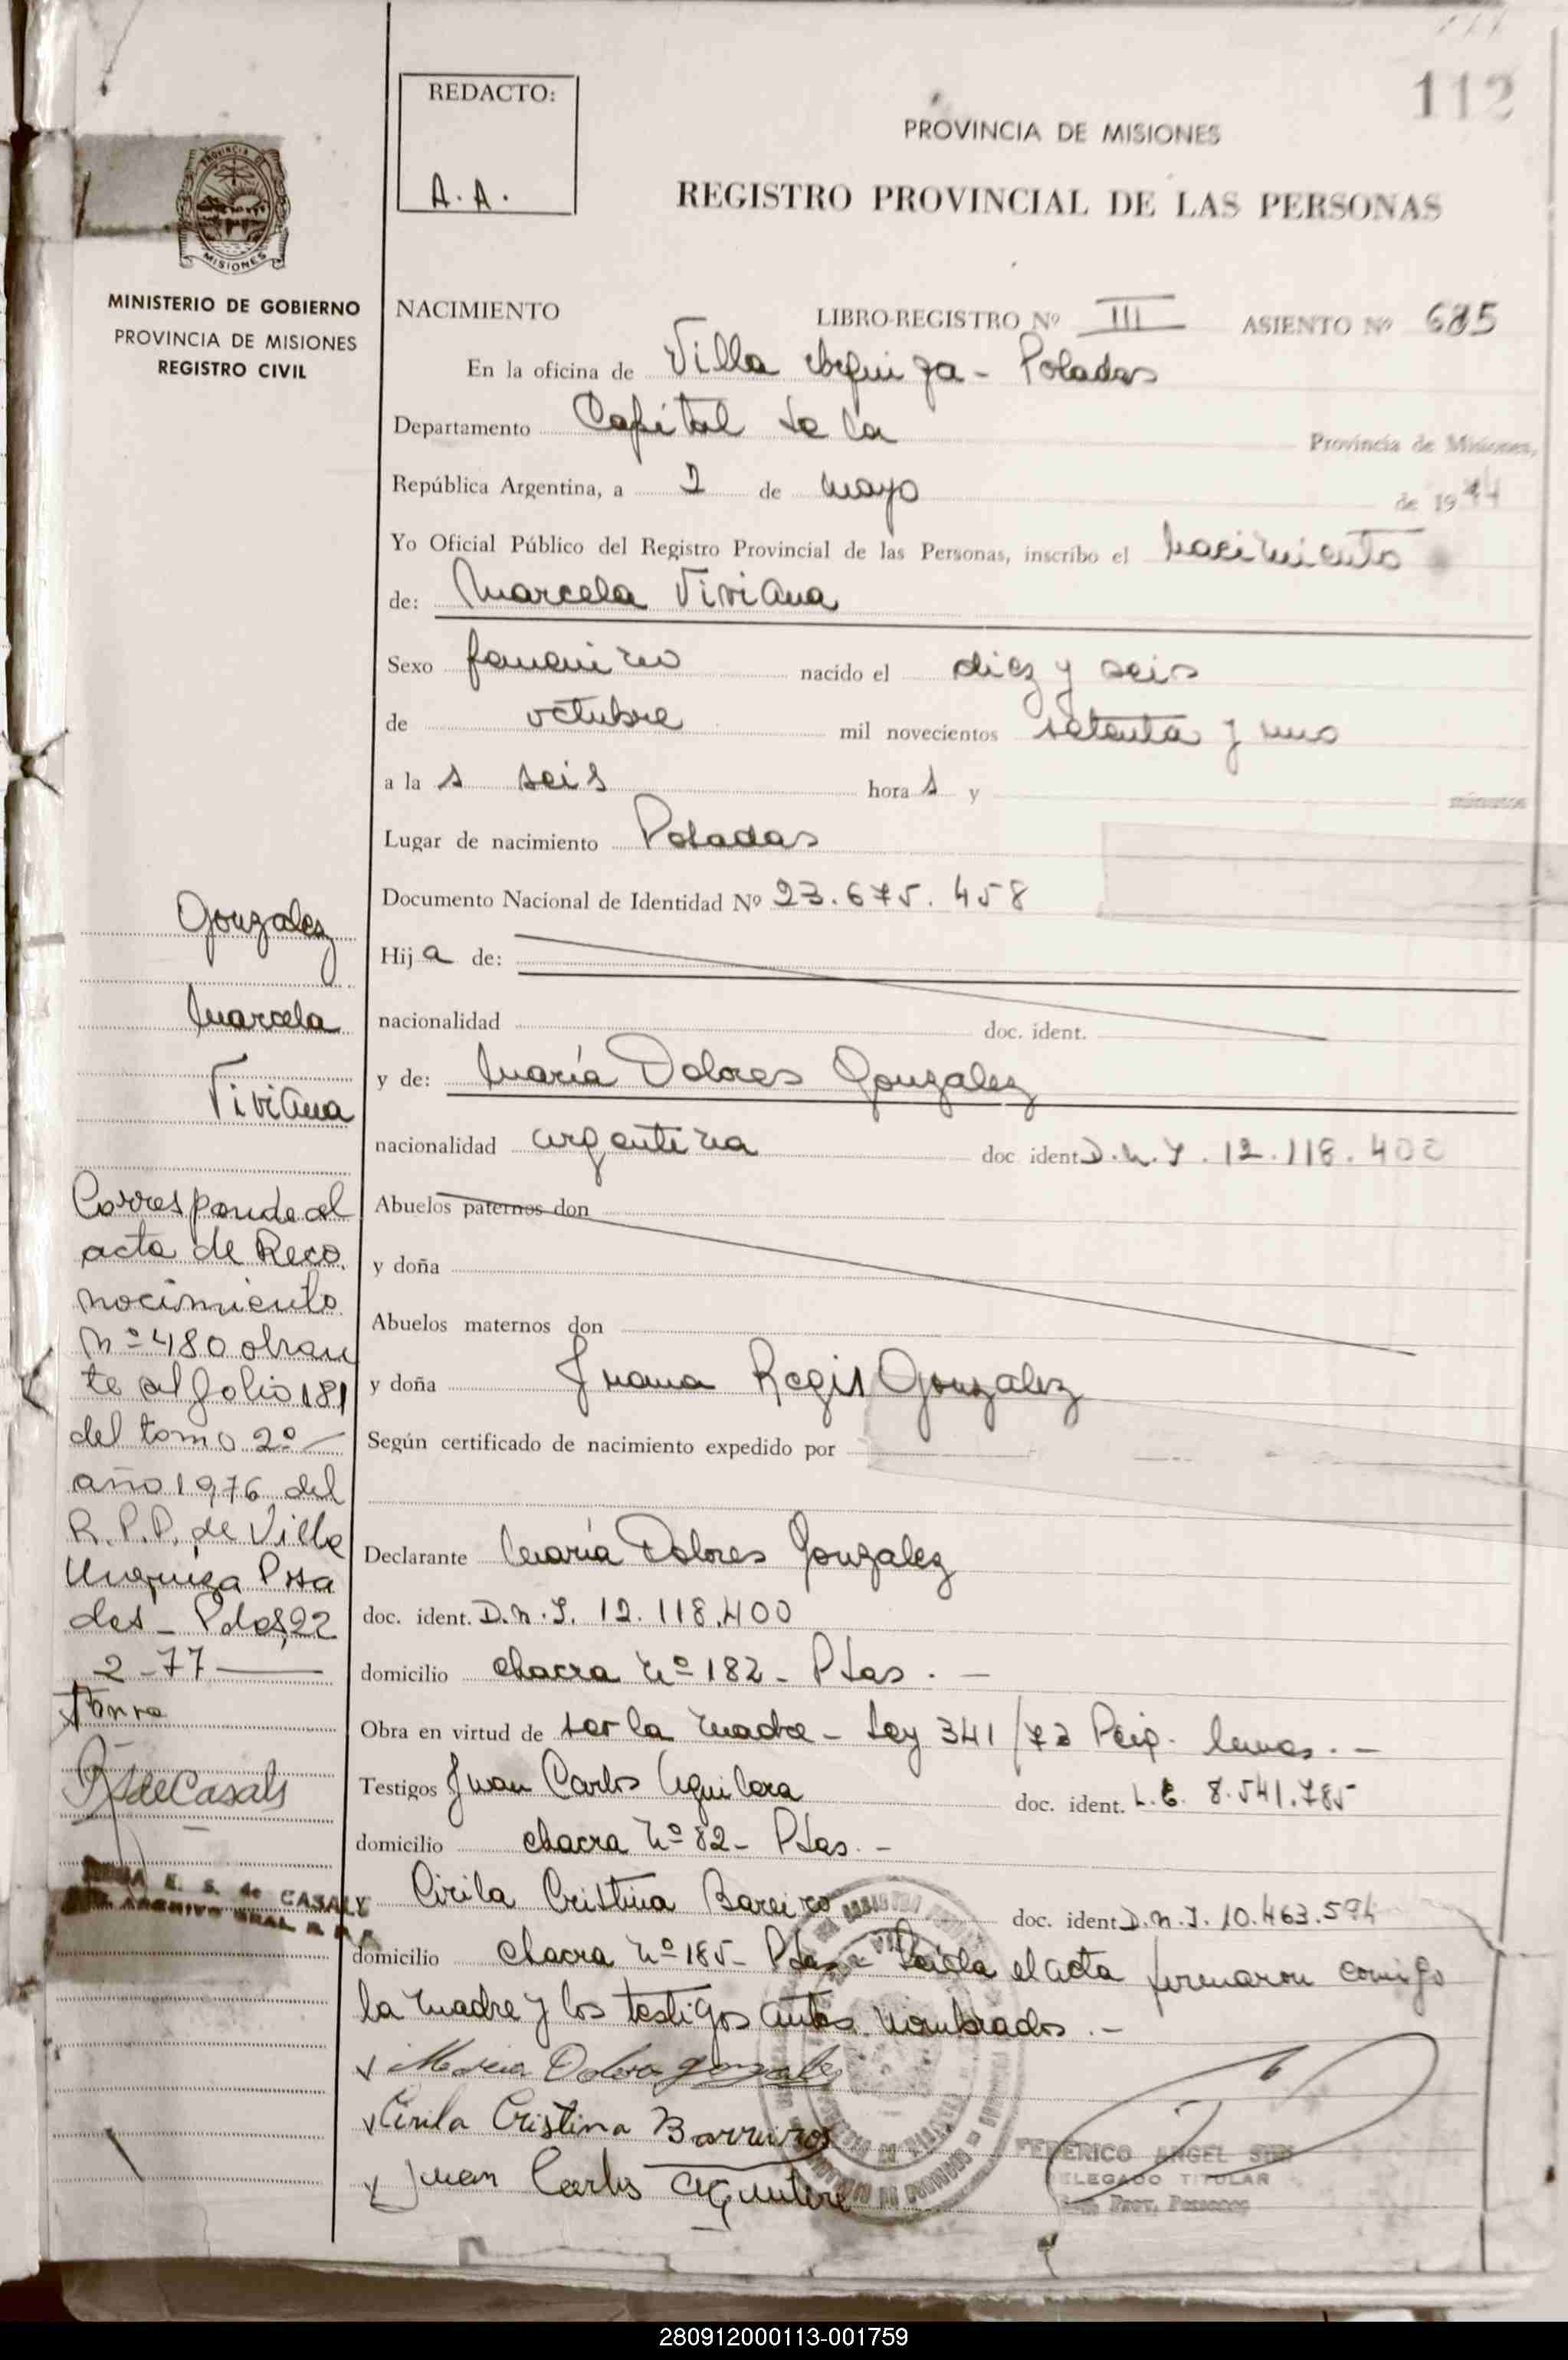 112
REDACTO:
A.A.
PROVINCIA DE MISIONES
REGISTRO PROVINCIAL DE LAS PERSONAS
PROVINCIA DE
MISIONES
MINISTERIO DE GOBIERNO
PROVINCIA DE MISIONES
REGISTRO CIVIL
NACIMIENTO LIBRO-REGISTRO Nº III ASIENTO Nº 685
En la oficina de Villa Urquiza - Posadas
Departamento Capital de la Provincia de Misiones,
República Argentina, a 2 de mayo de 19
Yo Oficial Público del Registro Provincial de las Personas, inscribo el nacimiento
de: Marcela Viviana
Sexo femenino nacido el diez y seis
de octubre mil novecientos setenta y uno
a la s seis hora s y minutos
Lugar de nacimiento Posadas
Documento Nacional de Identidad Nº 23.675.458
Hij a de:
nacionalidad doc. ident.
y de: María Dolores Gonzalez
nacionalidad argentina doc ident D.N.I. 12.118.400
Abuelos paternos don
y doña
Abuelos maternos don
y doña Juana Regis Gonzalez
Según certificado de nacimiento expedido por
Declarante María Dolores Gonzalez
doc. ident. D.N.I. 12.118.400
domicilio chacra Nº 182 - Pdas. -
Obra en virtud de ser la madre - Ley 341/73
Testigos Juan Carlos Aguilera doc. ident. L.E. 8.541.785
domicilio chacra Nº 82 - Pdas. -
Cirila Cristina Bareiro doc. ident D.N.I. 10.463.594
domicilio chacra Nº 185 - Pdas - Leida el acta firmaron comigo
la madre y los testigos antes nombrados. -
Maria Dolores gonzalez
Cirila Cristina Barreiro
Juan Carlos
FEDERICO ANGEL
DELEGADO TITULAR
Prov. Personas
Gonzalez
Marcela
Viviana
Corresponde al
acta de Reco
nocimiento
Nº 480 obran
te al folio 181
del tomo 2º
año 1976 del
R.P.P. de Villa
Urquiza Posa
das - Pdas, 22
2-77
E. S. de CASALY
ARCHIVO GRAL
280912000113-001759